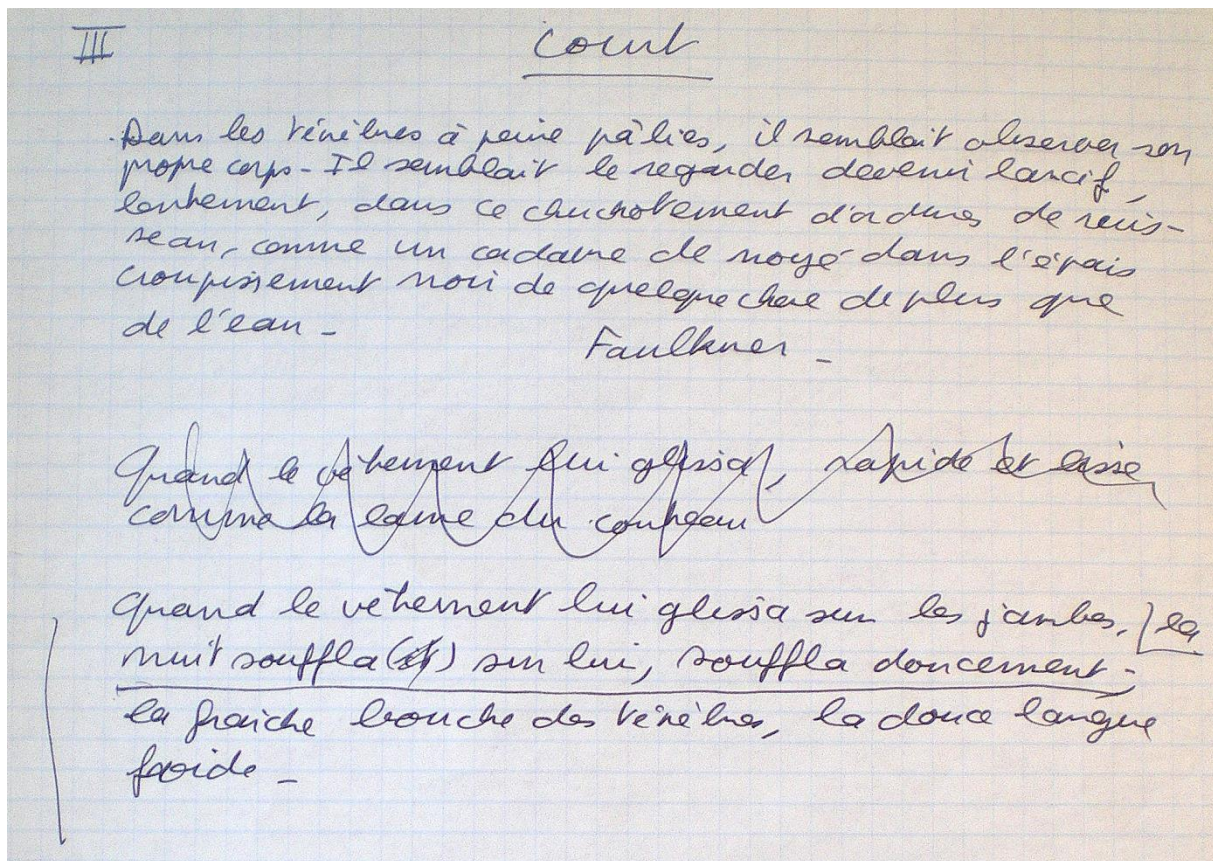 III
Court
Dans les ténèbres à peine pâlies, il semblait observer son
propre corps - Il semblait le regarder devenir lascif,
lentement, dans ce chuchotement d'ordures de ruis-
seau, comme un cadavre de noyé dans l'épais
croupissement noir de quelque chose de plus que
de l'eau -
Faulkner -
Quand le vêtement lui glissa, rapide et lisse
comme la lame du couteau
Quand le vêtement lui glissa sur les jambes, la
nuit souffla () sur lui, souffla doucement -,
la fraîche bouche des ténèbres, la douce langue
froide -